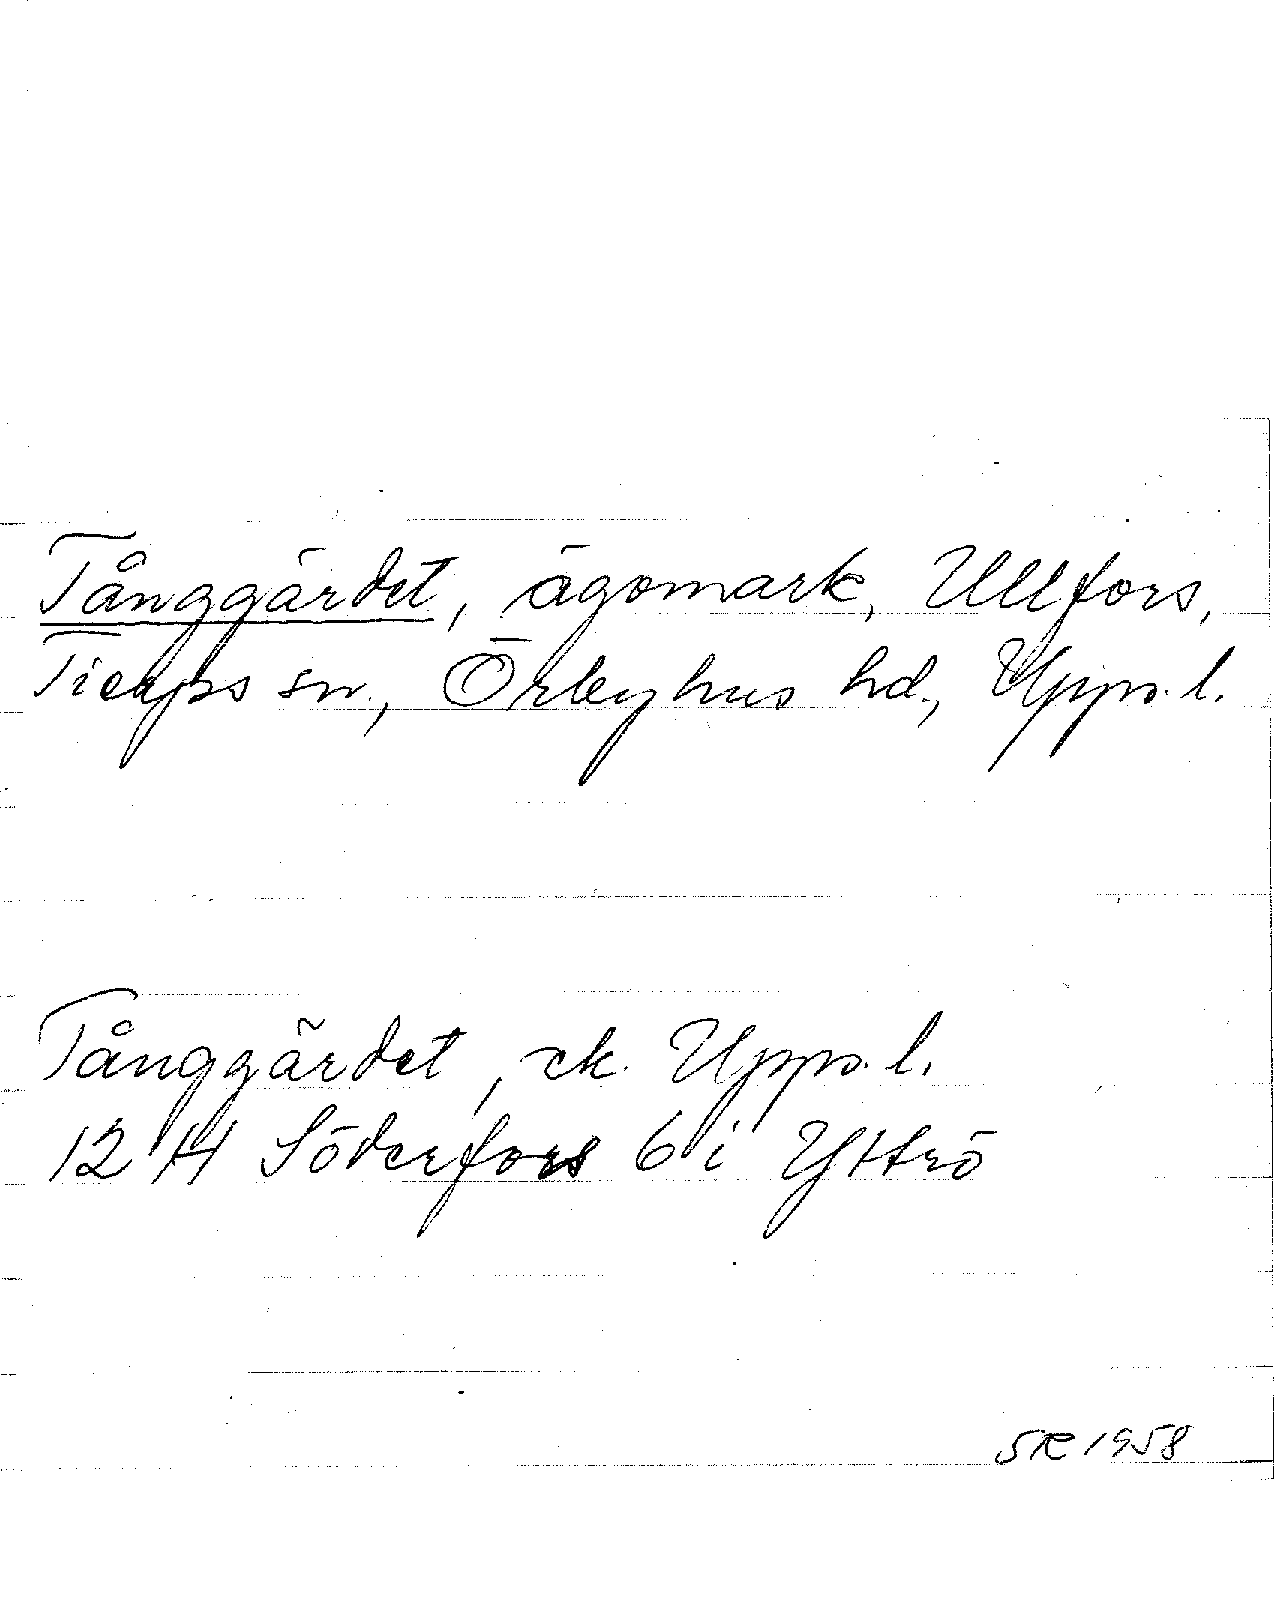 Tånggärdet, ägomark, Ullfors,
Tierps sn., Örbyhus hd., Upps. l.
Tånggärdet, ek. Upps. l.
12 H Söderfors 6 i Yttrö
SR 1958